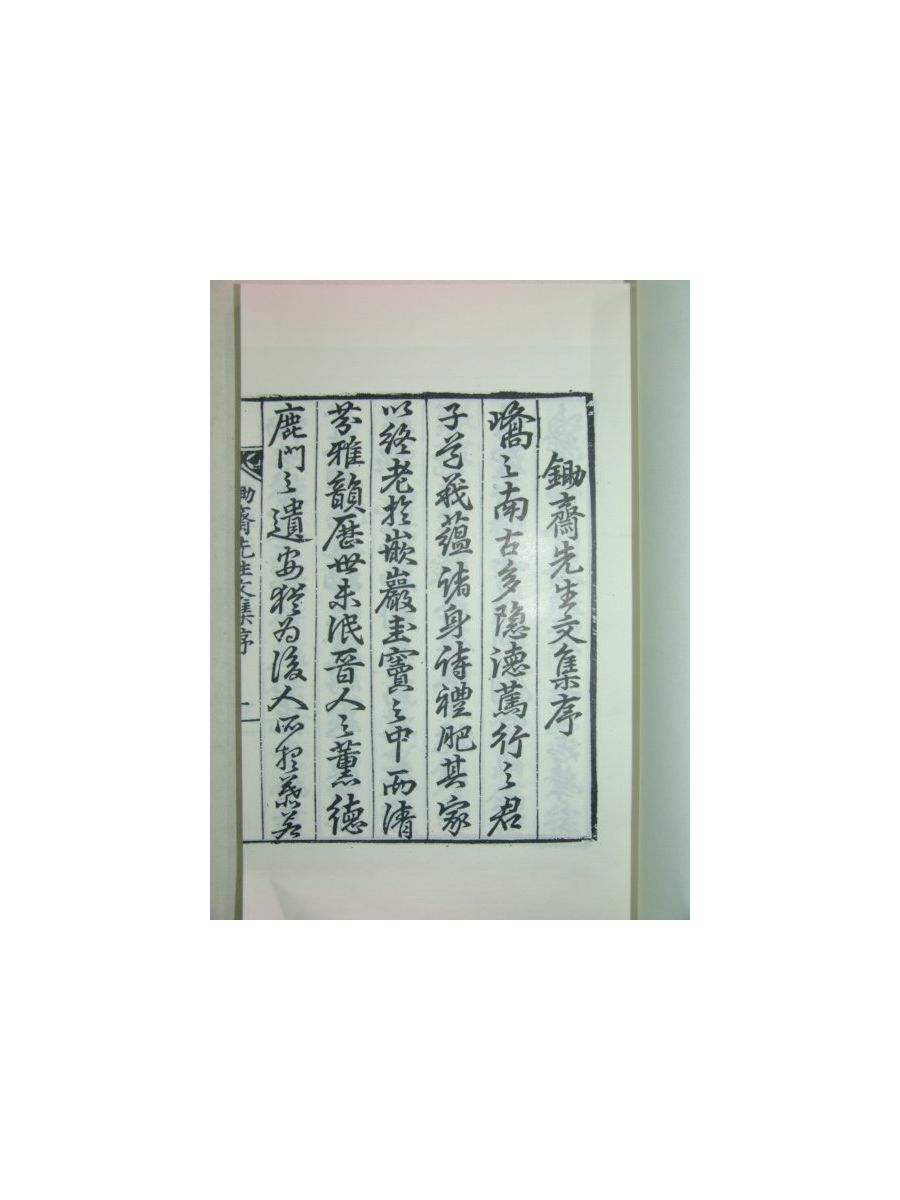 鋤齋先生文集序
嶠之南古多隐德蔦行之君
子道義蘊諸身詩禮肥其家
以終老於嵌巖圭竇之中而清
芬雅韻歷世未泯晉人之薰德
鹿門之遺安猶為後人所想慕若
鋤齋先生文集序
一